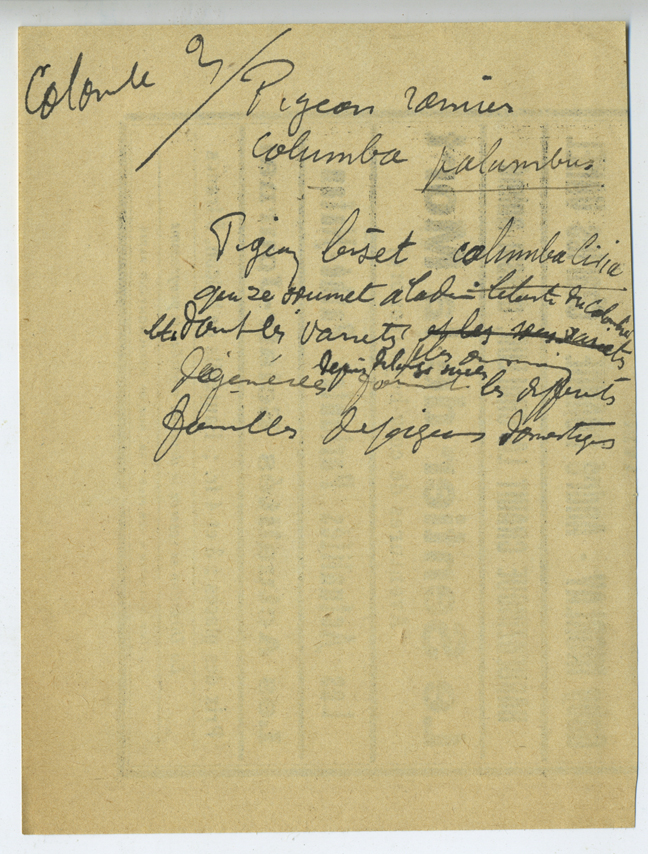 Colombe 2/ Pigeon ramier
columba palumbus
Pigeon biset columba livia
qui se soumet a la
et dont les variétés et les variétés
plus ou moins
dégénérées depuis font les différents
familles de pigeons domestiques